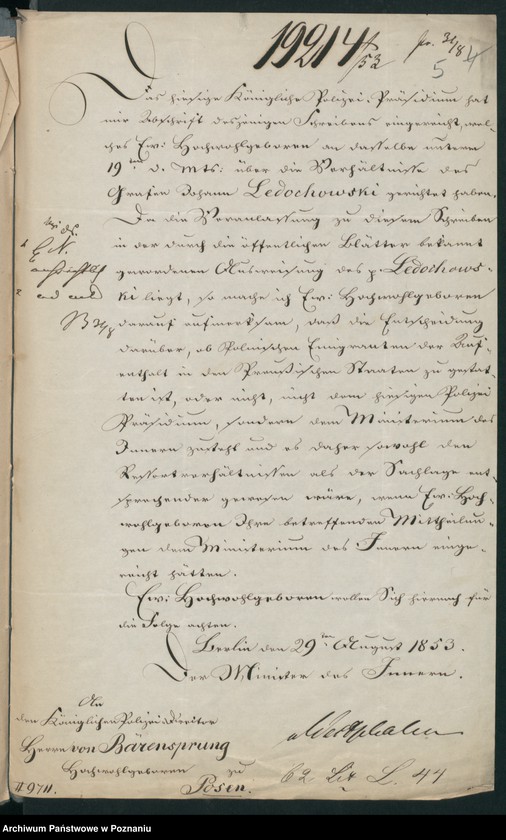 19214/53
pr. 31/8
5
Das hiesige Königliche Polizei-Präsidium hat
mir Abschrift desjenigen Schreibens eingereicht, wel-
ches Ew: Hochwohlgeboren an dasselbe unterm
19ten d. Mts: über die Verhältnisse des
Grafen Johann Ledochowski gerichtet haben.
Da die Veranlassung zu diesem Schreiben
in der durch die öffentlichen Blätter bekannt
gewordenen Ausweisung des p. Ledochows-
ki liegt, so mache ich Ew: Hochwohlgeboren
darauf aufmerksam, daß die Entscheidung
darüber, ob Polnischen Emigranten der Auf-
enthalt in den Preußischen Staaten zu gestat-
ten ist, oder nicht, nicht dem hiesigen Polizei
Präsidium, sondern dem Ministerium des
Innern zusteht und es daher sowohl den
Ressortverhältnissen als der Sachlage ent-
sprechender gewesen wäre, wenn Ew: Hoch-
wohlgeboren Ihre betreffenden Mittheilun-
gen dem Ministerium des Innern einge-
reicht hätten.
Ew: Hochwohlgeboren wollen Sich hiernach für
die Folge achten.
Berlin den 29ten August 1853.
Der Minister des Innern.
vWestphalen
An
den Königlichen Polizei Director
Herrn von Bärensprung
Hochwohlgeboren
zu
Posen.
#9711.
62 Lit L. 44
Archiwum Państwowe w Poznaniu